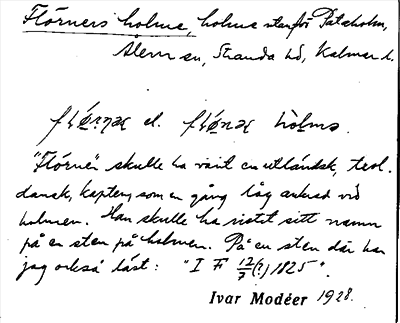 Flörners holme, holme utanför Pataholm,
Ålem sn, Stranda hd, Kalmar l.
el. hòlmə.
"Flörne" skulle ha varit en utländsk, trol.
dansk, kapten, som en gång låg ankrad vid
holmen. Han skulle ha ristat sitt namn
på en sten på holmen. På en sten där har
jag också läst: "I F 12/7 (?) 1825".
Ivar Modéer 1928.